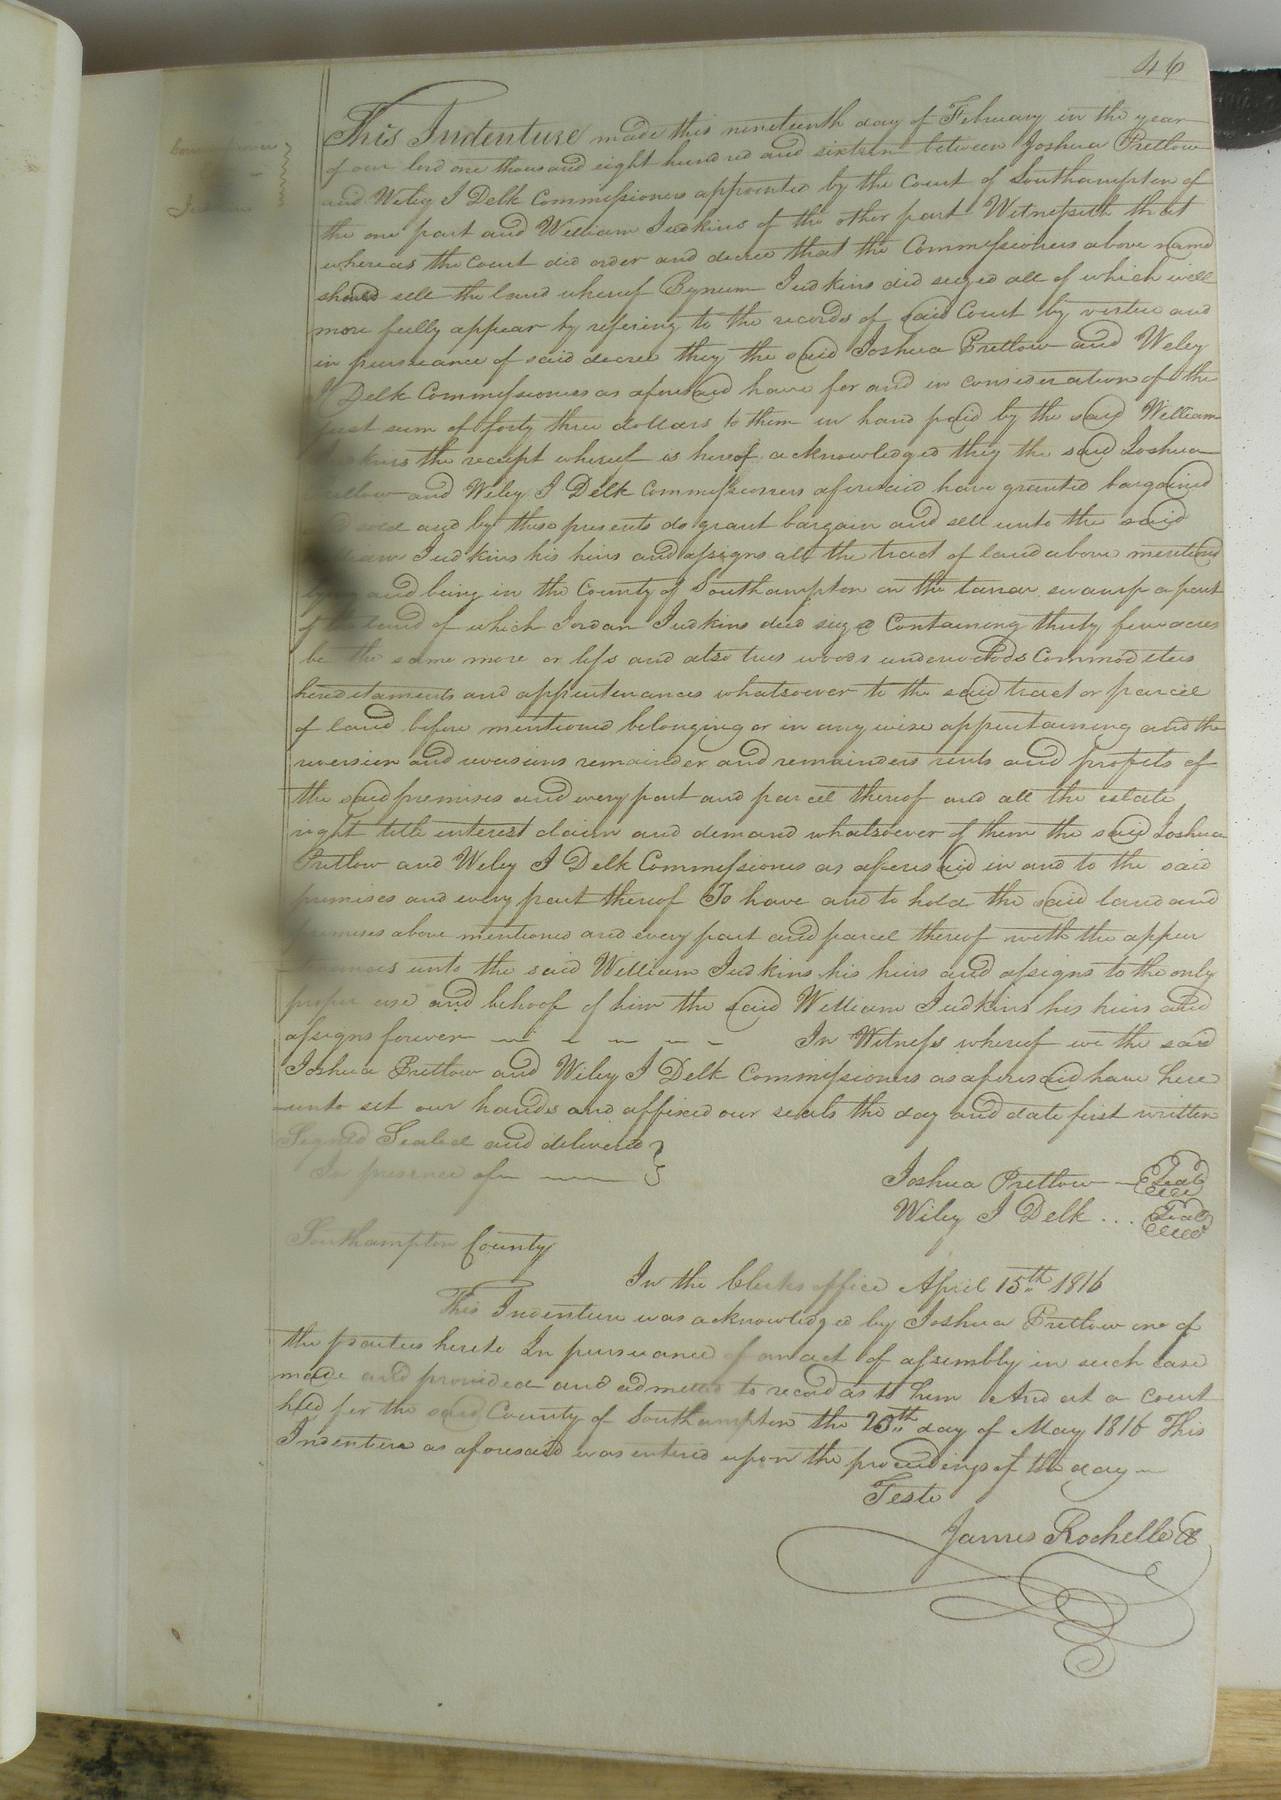 46
This Indenture made this nineteenth day of February in the year
of our lord one thousand eight hundred and sixteen between Joshua Pretlow
and Wiley J Delk Commissioners appointed by the Court of Southampton of
the one part and William Judkins of the other part Witnesseth that
whereas the Court did order and decree that the Commissioners above named
should sell the land whereof Bynum Judkins did seized all of which will
more fully appear by refering to the records of said Court by virtue and
in pursuance of said decree they the said Joshua Pretlow and Wiley
J Delk Commissioners as aforesaid have for and in consideration of the
just sum of forty three dollars to them in hand paid by the said William
the receipt whereof is hereof acknowledged they the said Joshua
and Wiley J Delk Commissioners aforesaid have granted bargained
sold and by these presents do grant bargain and sell unto the said
Judkins his heirs and assigns all the tract of land above mentioned
and being in the County of Southampton on the tarrar swamp a part
of land of which Jordan Judkins died seized Containing thirty acres
be the same more or less and also trees woods underwoods Commodities
hereditaments and appurtenances whatsoever to the said tract or parcel
of land before mentioned belonging or in any wise appurtaining and the
reversion and reversions remainder and remainders rents and profits of
the said premises and every part and parcel thereof and all the estate
right title interest claim and demand whatsoever of them the said Joshua
Pretlow and Wiley J Delk Commissioners as aforesaid in and to the said
premises and every part thereof To have and to hold the said land and
premises above mentioned and every part and parcel thereof with the appur
tenances unto the said William Judkins his heirs and assigns to the only
proper use and behoof of him the said William Judkins his heirs and
assigns forever — — — — — In Witness whereof we the said
Joshua Pretlow and Wiley J Delk Commissioners as aforesaid have here
unto set our hands and affixed our seals the day and date first written
Signed Sealed and delivered }
In presence of — —
Joshua Pretlow — Seal
Wiley J Delk ... Seal
Southampton County
In the Clerks office April 15th 1816
This Indenture was acknowledged by Joshua Pretlow one of
the parties hereto In pursuance of an act of assembly in such case
made and provided and admitted to record as to him And at a court
held for the said County of Southampton the 20th day of May 1816 This
Indenture as aforesaid was entered upon the proceedings of the day —
Teste
James Rochelle